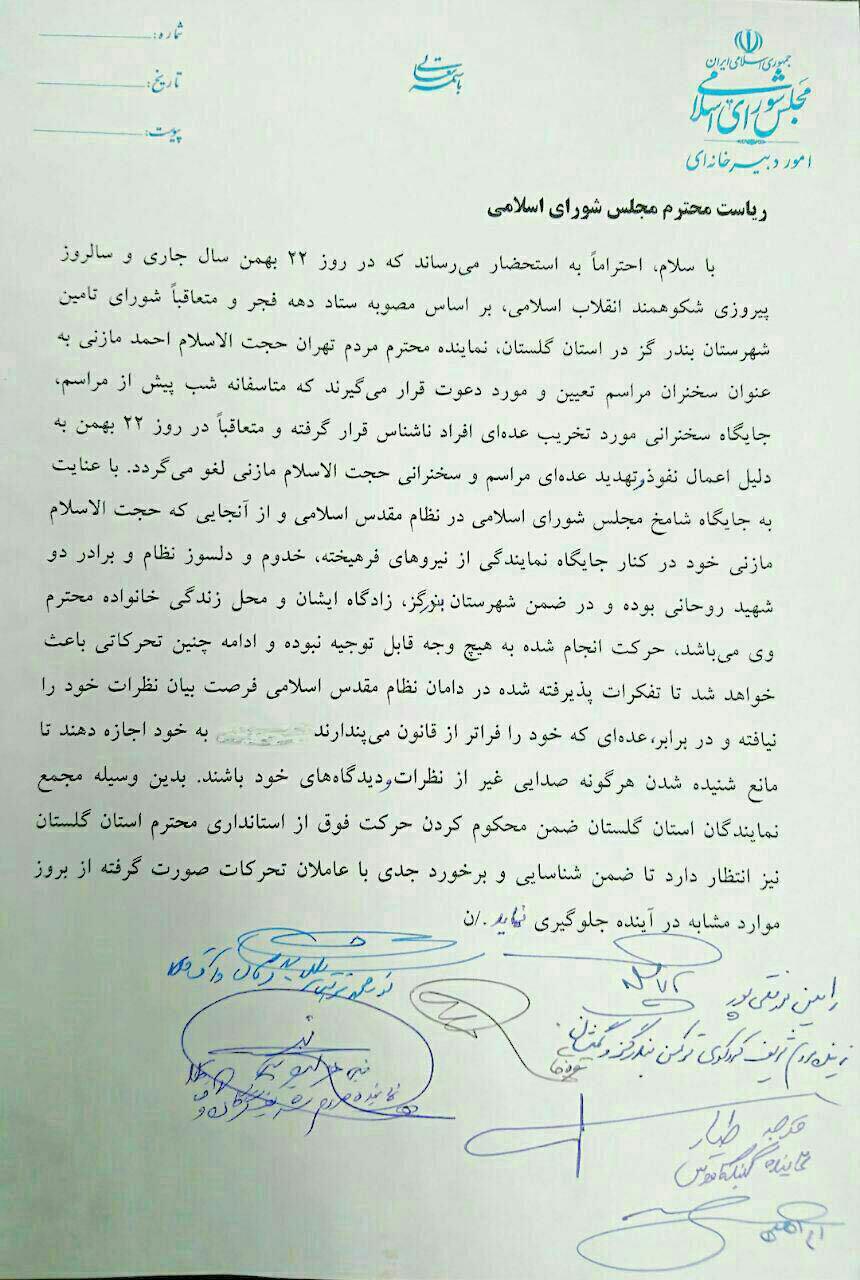 جمهوری اسلامی ایران
مجلس شورای اسلامی
امور دبیرخانه‌ای
باسمه تعالی
شماره:
تاریخ:
پیوست:
ریاست محترم مجلس شورای اسلامی
با سلام، احتراماً به استحضار می‌رساند که در روز ۲۲ بهمن سال جاری و سالروز
پیروزی شکوهمند انقلاب اسلامی، بر اساس مصوبه ستاد دهه فجر و متعاقباً شورای تامین
شهرستان بندر گز در استان گلستان، نماینده محترم مردم تهران حجت الاسلام احمد مازنی به
عنوان سخنران مراسم تعیین و مورد دعوت قرار می‌گیرند که متاسفانه شب پیش از مراسم،
جایگاه سخنرانی مورد تخریب عده‌ای افراد ناشناس قرار گرفته و متعاقباً در روز ۲۲ بهمن به
دلیل اعمال نفوذ و تهدید عده‌ای مراسم و سخنرانی حجت الاسلام مازنی لغو می‌گردد. با عنایت
به جایگاه شامخ مجلس شورای اسلامی در نظام مقدس اسلامی و از آنجایی که حجت الاسلام
مازنی خود در کنار جایگاه نمایندگی از نیروهای فرهیخته، خدوم و دلسوز نظام و برادر دو
شهید روحانی بوده و در ضمن شهرستان بندرگز، زادگاه ایشان و محل زندگی خانواده محترم
وی می‌باشد، حرکت انجام شده به هیچ وجه قابل توجیه نبوده و ادامه چنین تحرکاتی باعث
خواهد شد تا تفکرات پذیرفته شده در دامان نظام مقدس اسلامی فرصت بیان نظرات خود را
نیافته و در برابر، عده‌ای که خود را فراتر از قانون می‌پندارند به خود اجازه دهند تا
مانع شنیده شدن هرگونه صدایی غیر از نظرات و دیدگاه‌های خود باشند. بدین وسیله مجمع
نمایندگان استان گلستان ضمن محکوم کردن حرکت فوق از استانداری محترم استان گلستان
نیز انتظار دارد تا ضمن شناسایی و برخورد جدی با عاملان تحرکات صورت گرفته از بروز
موارد مشابه در آینده جلوگیری نماید ./ن
رامین نورقلی پور
شریف کردکوی ترکمن بندرگز و گمیشان
نماینده مردم
طیار
نماینده گنبدکاووس